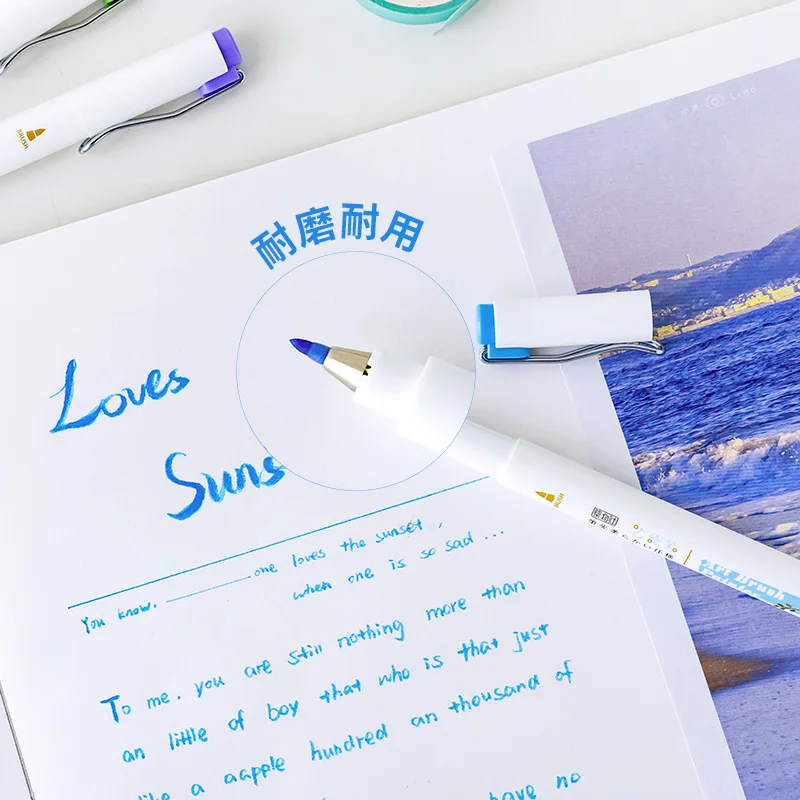 BRUSH
LOMO
耐磨耐用
Loves
Suns
BRUSH
Art Brush
You know. one loves the sunset,
when one is so sad ...
To me. you are still nothing more than
an little of boy that who is that just
like a aapple hundred an thousand of
have no